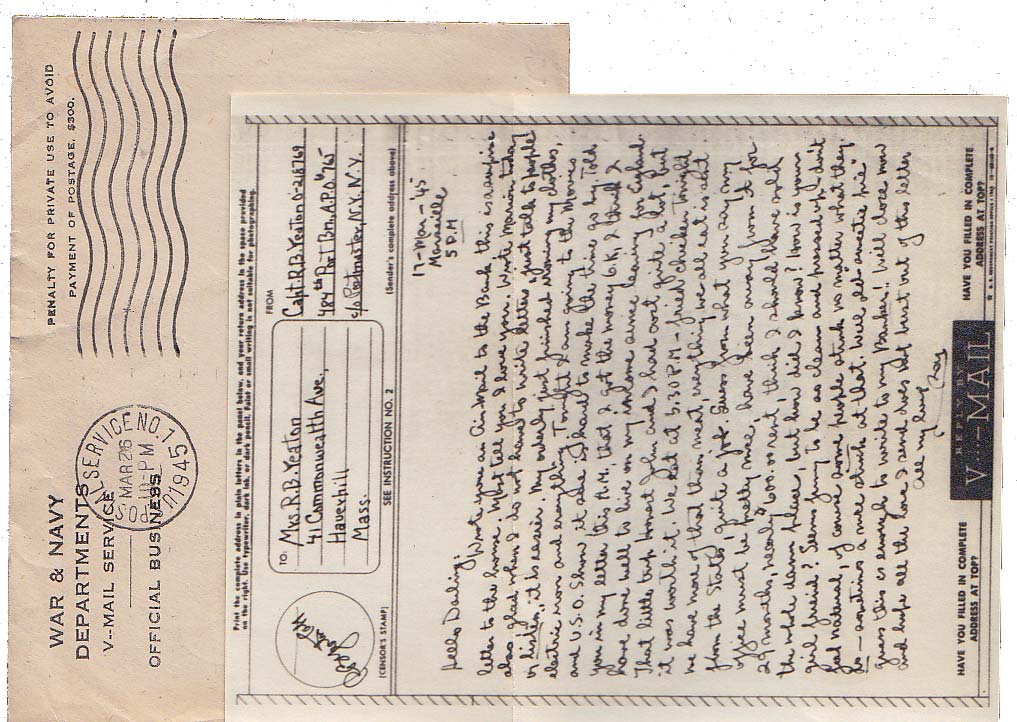 WAR & NAVY
DEPARTMENTS
V--MAIL SERVICE
OFFICIAL BUSINESS
POSTAL SERVICE NO. 1
MAR 26
10-PM
1945
PENALTY FOR PRIVATE USE TO AVOID
PAYMENT OF POSTAGE, $300.
Print the complete address in plain letters in the panel below, and your return address in the space provided
on the right. Use typewriter, dark ink, or dark pencil. Faint or small writing is not suitable for photographing.
(CENSOR'S STAMP)
TO:
Mrs. R.B. Yeaton
41 Commonwealth Ave.,
Haverhill
Mass.
SEE INSTRUCTION NO. 2
FROM
Capt. R.B. Yeaton O-218769
484th Port Bn. A.P.O. "765
c/o Postmaster, N.Y. N.Y.
(Sender's complete address above)
17-Mar-'45
Marseille
5 P.M
Hello Darling:
Wrote you an Air Mail to the Bank this is a surprise
letter to the home. What tell you I love you. Wrote Marion today
also glad when I do not have to write letters "just talk to people
& listen", it is easier. My orderly just finished ironing my clothes,
electric iron and everything. Tonight I am going to the Movies
and U.S.O. Show, it sure is hard to make the time go by. Told
you in my letter this A.M. that I got the money O.K, I think I
have done well to live on my income since leaving for England.
That little trip Honest John and I had cost quite a lot, but
it was worth it. We eat at 5.30 P.M - fried chicken tonight
we have more of that than meat, everything we all eat is sent
from the States, quite a job. Guess from what you say my
office must be pretty nice, have been away from it for
29 months, nearly $600. no rent, think I should have sold
the whole damn place, but how did I know? How is your
girl freind? Seems funny to be as clean and pressed up I don't
feel natural, of course some people stink no matter what they
do - sometimes a mice stink at that. Well old "smootie pie"
guess this is enough to write to my Banker! Will close now
and hope all the love I send does not burst out of this letter.
all my love
Ray
HAVE YOU FILLED IN COMPLETE
ADDRESS AT TOP?
REPLY BY
V--MAIL
HAVE YOU FILLED IN COMPLETE
ADDRESS AT TOP?